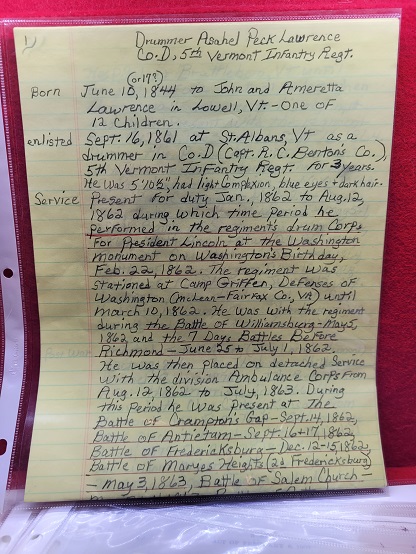 Drummer Asahel Peck Lawrence
Co. D, 5th Vermont Infantry Regt.
(or 17?)
Born June 10, 1844 to John and Ameretta
Lawrence in Lowell, Vt - One of
12 Children.
enlisted Sept. 16, 1861 at St. Albans, Vt as a
drummer in Co. D (Capt. R. C. Benton's Co.),
5th Vermont Infantry Regt. For 3 years.
He was 5'10½", had light complexion, blue eyes + dark hair.
Service Present for duty Jan., 1862 to Aug. 12,
1862 during which time period he
performed in the regiment's drum Corps
For President Lincoln at the Washington
monument on Washington's Birthday,
Feb. 22, 1862. The regiment was
stationed at Camp Griffen, Defenses of
Washington (McLean-Fairfax Co., VA) until
March 10, 1862. He was with the regiment
during the Battle of Williamsburg-May 5,
1862 and the 7 Days Battles Before
Richmond - June 25 to July 1, 1862.
He was then placed on detached Service
with the division Ambulance Corps From
Aug. 12 1862 to July, 1863. During
this period he was present at the
Battle of Crampton's Gap-Sept. 14, 1862,
Battle of Antietam-Sept. 16+17, 1862,
Battle of Fredericksburg-Dec. 12-15, 1862,
Battle of Maryes Heights (2d Fredericksburg)
- May 3, 1863, Battle of Salem Church -